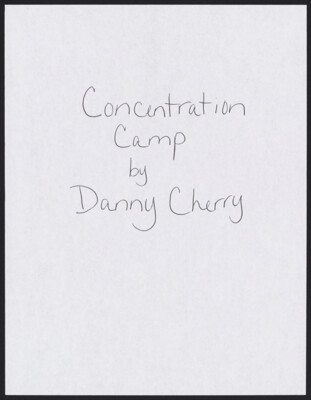 Concentration
Camp
by
Danny Cherry